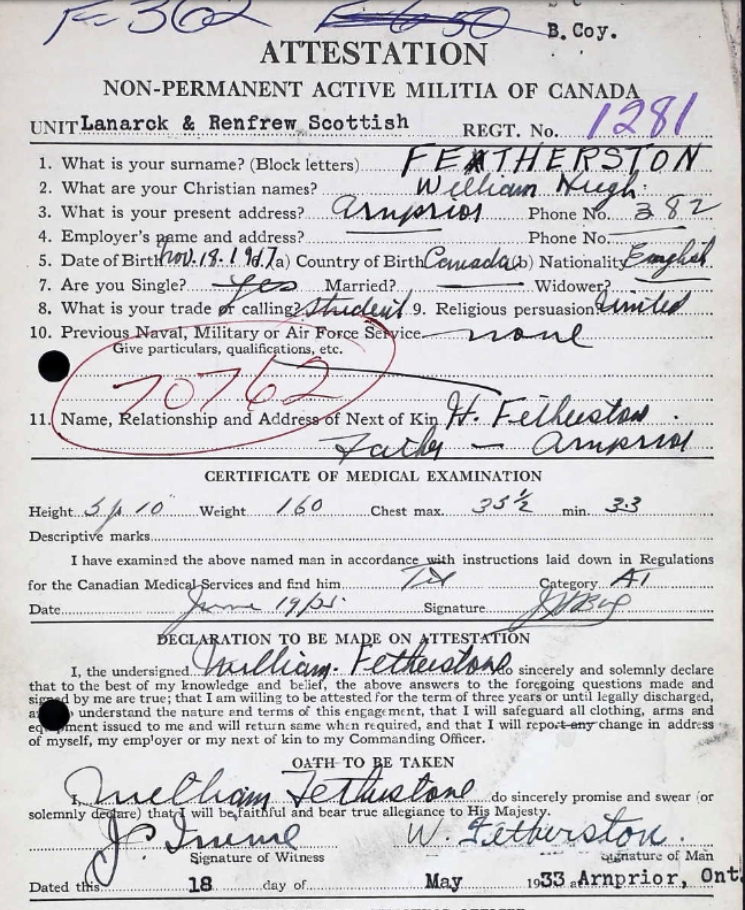 Fc 362
B. Coy.
ATTESTATION
NON-PERMANENT ACTIVE MILITIA OF CANADA
UNIT Lanarck & Renfrew Scottish REGT. No. 1281
1. What is your surname? (Block letters) FEATHERSTON
2. What are your Christian names? William Hugh
3. What is your present address? Arnprior Phone No. 382
4. Employer's name and address? Phone No.
5. Date of Birth Nov. 18. (a) Country of Birth Canada (b) Nationality English
7. Are you Single? Yes Married? — Widower? —
8. What is your trade or calling? Student 9. Religious persuasion United
10. Previous Naval, Military or Air Force Service none
Give particulars, qualifications, etc.
70762
11. Name, Relationship and Address of Next of Kin H. Fetherston
Father — Arnprior
CERTIFICATE OF MEDICAL EXAMINATION
Height 5 10" Weight 160 Chest max. 35½ min. 33
Descriptive marks
I have examined the above named man in accordance with instructions laid down in Regulations
for the Canadian Medical Services and find him Fit Category A1
Date June 19/ Signature
DECLARATION TO BE MADE ON ATTESTATION
I, the undersigned William Fetherstone do sincerely and solemnly declare
that to the best of my knowledge and belief, the above answers to the foregoing questions made and
signed by me are true; that I am willing to be attested for the term of three years or until legally discharged,
understand the nature and terms of this engagement, that I will safeguard all clothing, arms and
equipment issued to me and will return same when required, and that I will report any change in address
of myself, my employer or my next of kin to my Commanding Officer.
OATH TO BE TAKEN
I, William Fetherstone do sincerely promise and swear (or
solemnly declare) that I will be faithful and bear true allegiance to His Majesty.
W. Fetherston.
Signature of Witness Signature of Man
Dated this 18 day of May 1933 at Arnprior, Ont.